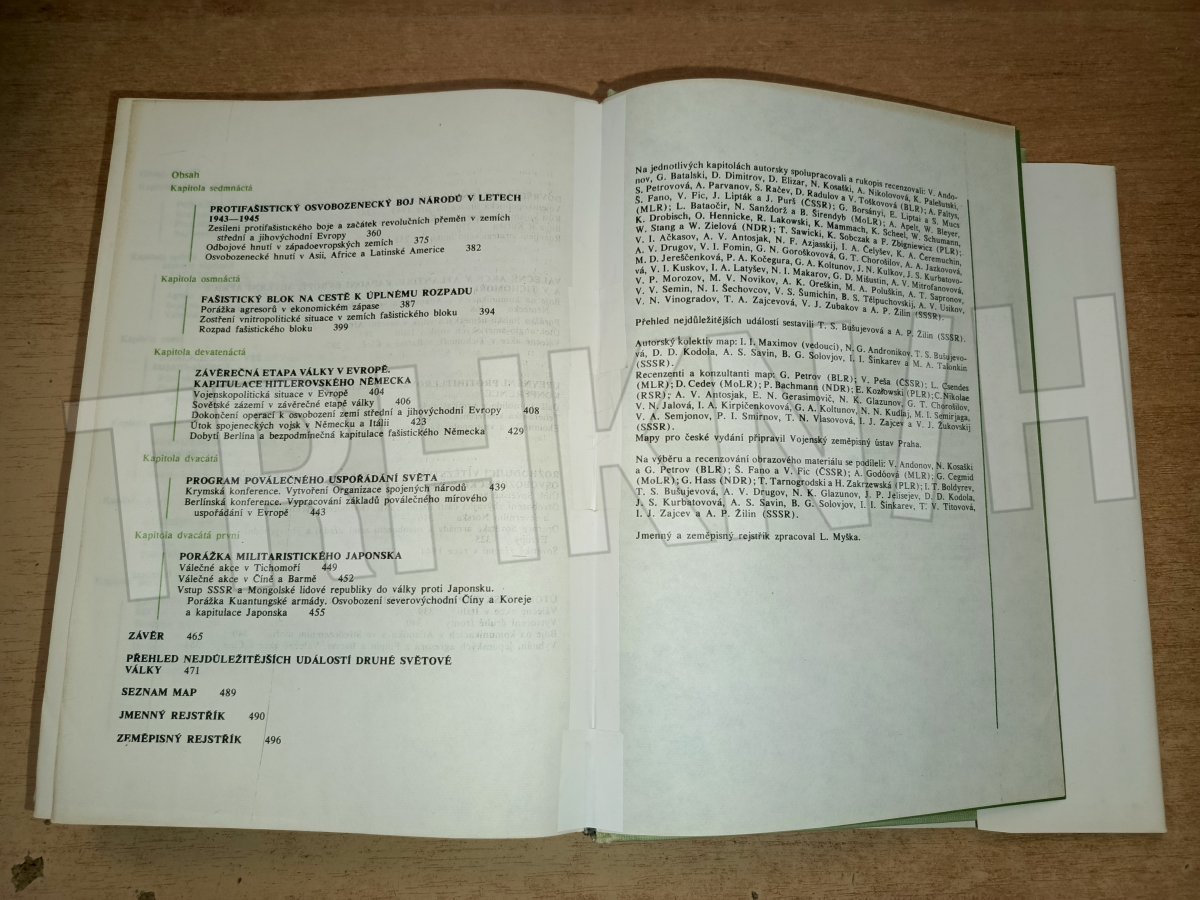 Obsah
Kapitola sedmnáctá
PROTIFAŠISTICKÝ OSVOBOZENECKÝ BOJ NÁRODŮ V LETECH
1943—1945
Zesílení protifašistického boje a začátek revolučních přeměn v zemích
střední a jihovýchodní Evropy 360
Odbojové hnutí v západoevropských zemích 375
Osvobozenecké hnutí v Asii, Africe a Latinské Americe 382
Kapitola osmnáctá
FAŠISTICKÝ BLOK NA CESTĚ K ÚPLNÉMU ROZPADU
Porážka agresorů v ekonomickém zápase 387
Zostření vnitropolitické situace v zemích fašistického bloku 394
Rozpad fašistického bloku 399
Kapitola devatenáctá
ZÁVĚREČNÁ ETAPA VÁLKY V EVROPĚ.
KAPITULACE HITLEROVSKÉHO NĚMECKA
Vojenskopolitická situace v Evropě 404
Sovětské zázemí v závěrečné etapě války 406
Dokončení operací k osvobození zemí střední a jihovýchodní Evropy 408
Útok spojeneckých vojsk v Německu a Itálii 423
Dobytí Berlína a bezpodmínečná kapitulace fašistického Německa 429
Kapitola dvacátá
PROGRAM POVÁLEČNÉHO USPOŘÁDÁNÍ SVĚTA
Krymská konference. Vytvoření Organizace spojených národů 439
Berlínská konference. Vypracování základů poválečného mírového
uspořádání v Evropě 443
Kapitola dvacátá první
PORÁŽKA MILITARISTICKÉHO JAPONSKA
Válečné akce v Tichomoří 449
Válečné akce v Číně a Barmě 452
Vstup SSSR a Mongolské lidové republiky do války proti Japonsku.
Porážka Kuantungské armády. Osvobození severovýchodní Číny a Koreje
a kapitulace Japonska 455
ZÁVĚR 465
PŘEHLED NEJDŮLEŽITĚJŠÍCH UDÁLOSTÍ DRUHÉ SVĚTOVÉ
VÁLKY 471
SEZNAM MAP 489
JMENNÝ REJSTŘÍK 490
ZEMĚPISNÝ REJSTŘÍK 496
Na jednotlivých kapitolách autorsky spolupracovali a rukopis recenzovali: V. Ando-
nov, G. Batalski, D. Dimitrov, D. Elizar, N. Kosaški, A. Nikolovová, K. Palešutski,
S. Petrovová, A. Parvanov, S. Račev, D. Radulov a V. Toškovová (BLR); A. Palitys,
Š. Fano, V. Fic, J. Lipták a J. Purš (ČSSR); G. Borsányi, E. Liptai a S. Mucs
(MLR); L. Bataočir, N. Sanždorž a B. Širendyb (MoLR); A. Apelt, W. Bleyer,
K. Drobisch, O. Hennicke, R. Lakowski, K. Mammach, K. Scheel, W. Schumann,
W. Stang a W. Zielová (NDR); T. Sawicki, K. Sobczak a F. Zbigniewicz (PLR);
V. I. Ačkasov, A. V. Antosjak, N. F. Azjasskij, I. A. Čelyšev, K. A. Čeremuchin,
A. V. Drugov, V. I. Fomin, G. N. Goroškovová, G. T. Chorošilov, A. A. Jazkovová,
M. D. Jereščenková, P. A. Kočegura, G. A. Koltunov, J. N. Kulkov, J. S. Kurbatovo-
vá, V. I. Kuskov, I. A. Latyšev, N. I. Makarov, G. D. Mišustin, A. V. Mitrofanovová,
V. P. Morozov, M. V. Novikov, A. K. Oreškin, M. A. Poluškin, A. T. Sapronov,
V. V. Semin, N. I. Šechovcov, V. S. Šumichin, B. S. Tělpuchovskij, A. V. Usikov,
V. N. Vinogradov, T. A. Zajcevová, V. J. Zubakov a A. P. Žilin (SSSR).
Přehled nejdůležitějších událostí sestavili T. S. Bušujevová a A. P. Žilin (SSSR).
Autorský kolektiv map: I. I. Maximov (vedoucí), N. G. Andronikov, T. S. Bušujevo-
vá, D. D. Kodola, A. S. Savin, B. G. Solovjov, I. I. Šinkarev a M. A. Talonkin
(SSSR).
Recenzenti a konzultanti map: G. Petrov (BLR); V. Peša (ČSSR); L. Csendes
(MLR); D. Cedev (MoLR); P. Bachmann (NDR); E. Kozłowski (PLR); C. Nikolae
(RSR); A. V. Antosjak, E. N. Gerasimovič, N. K. Glazunov, G. T. Chorošilov,
V. N. Jalová, I. A. Kirpičenkovová, G. A. Koltunov, N. N. Kudlaj, M. I. Semirjaga,
V. A. Semjonov, P. I. Smirnov, T. N. Vlasovová, I. J. Zajcev a V. J. Žukovskij
(SSSR).
Mapy pro české vydání připravil Vojenský zeměpisný ústav Praha.
Na výběru a recenzování obrazového materiálu se podíleli: V. Andonov, N. Kosaški
a G. Petrov (BLR); Š. Fano a V. Fic (ČSSR); A. Godóová (MLR); G. Cegmid
(MoLR); G. Hass (NDR); T. Tarnogrodski a H. Zakrzewská (PLR); I. T. Boldyrev,
T. S. Bušujevová, A. V. Drugov, N. K. Glazunov, J. P. Jelisejev, D. D. Kodola,
J. S. Kurbatovová, A. S. Savin, B. G. Solovjov, I. I. Šinkarev, T. V. Titovová,
I. J. Zajcev a A. P. Žilin (SSSR).
Jmenný a zeměpisný rejstřík zpracoval L. Myška.